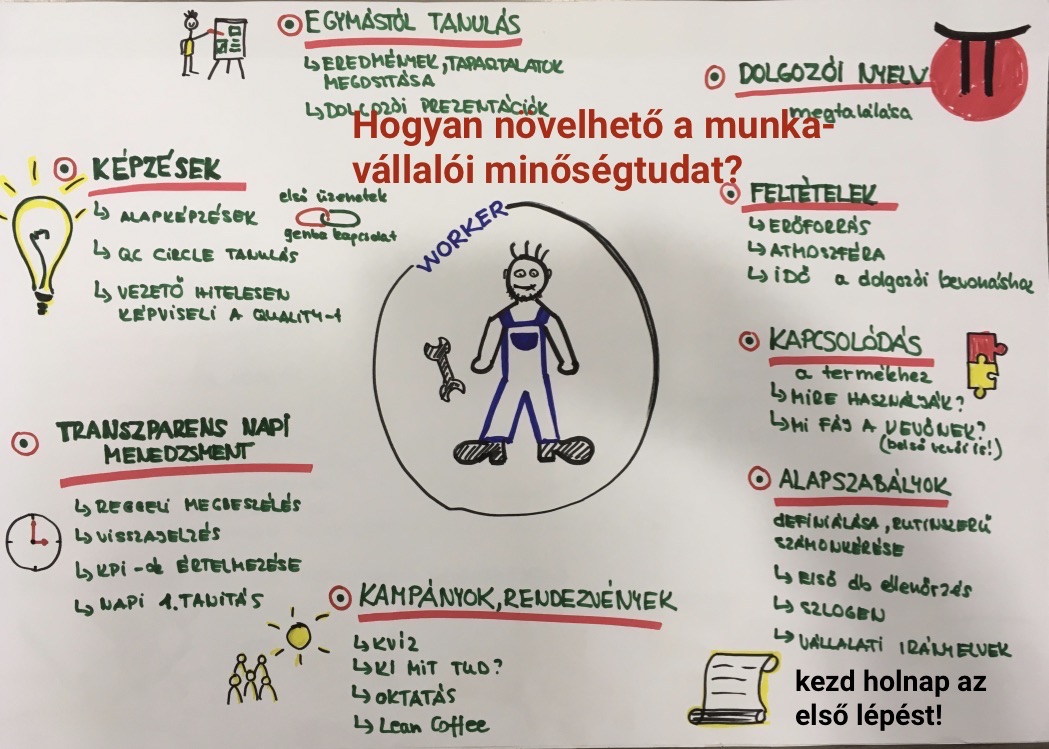 EGYMÁSTÓL TANULÁS
↳ EREDMÉNYEK, TAPASTALATOK
MEGOSTÁSA
↳ DOLGOZÓI PREZENTÁCIÓK
Hogyan növelhető a munka-
vállalói minőségtudat?
DOLGOZÓI NYELV
megtalálása
KÉPZÉSEK
↳ ALAPKÉPZÉSEK
↳ QC CIRCLE TANULÁS
↳ VEZETŐ HITELESEN
KÉPVISELI A QUALITY-t
első üzenetek
gemba kapcsolat
WORKER
FELTÉTELEK
↳ ERŐFORRÁS
↳ ATMOSZFÉRA
↳ IDŐ a dolgozói bevonáshoz
KAPCSOLÓDÁS
a termékhez
↳ MIRE HASZNÁLJÁK?
↳ MI FÁJ A VEVŐNEK?
(belső vevő is!)
TRANSZPARENS NAPI
MENEDZSMENT
↳ REGGELI MEGBESZÉLÉS
↳ VISSZAJELZÉS
↳ KPI-ok ÉRTELMEZÉSE
↳ NAPI 1. TANÍTÁS
ALAPSZABÁLYOK
DEFINIÁLÁSA, RUTINSZERŰ
SZÁMONKÉRÉSE
↳ ELSŐ db ellenőrzés
↳ SZLOGEN
↳ VÁLLALATI IRÁNYELVEK
KAMPÁNYOK, RENDEZVÉNYEK
↳ KVÍZ
↳ KI MIT TUD?
↳ OKTATÁS
↳ Lean Coffee
kezd holnap az
első lépést!